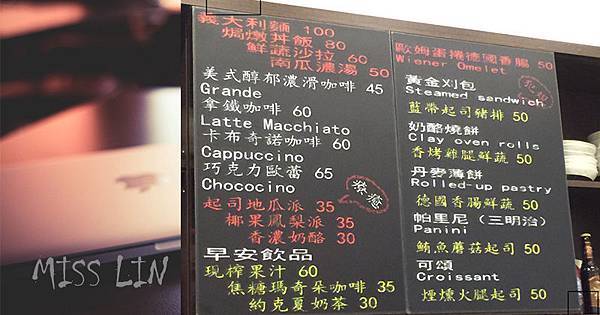 義大利麵 100
焗燉丼飯 80
鮮蔬沙拉 60
南瓜濃湯 50
美式醇郁濃滑咖啡 45
Grande
拿鐵咖啡 60
Latte Macchiato
卡布奇諾咖啡 60
Cappuccino
巧克力歐蕾 65
Chococino
起司地瓜派 35
椰果鳳梨派 35
香濃奶酪 30
早安飲品
現榨果汁 60
焦糖瑪奇朵咖啡 35
約克夏奶茶 30
歐姆蛋捲德國香腸 50
Wiener Omelet
黃金刈包
Steamed sandwich
藍帶起司豬排 50
奶酪燒餅
Clay oven rolls
香烤雞腿鮮蔬 50
丹麥薄餅
Rolled-up pastry
德國香腸鮮蔬 50
帕里尼（三明治）
Panini
鮪魚蘑菇起司 50
可頌
Croissant
煙燻火腿起司 50
MISS LIN